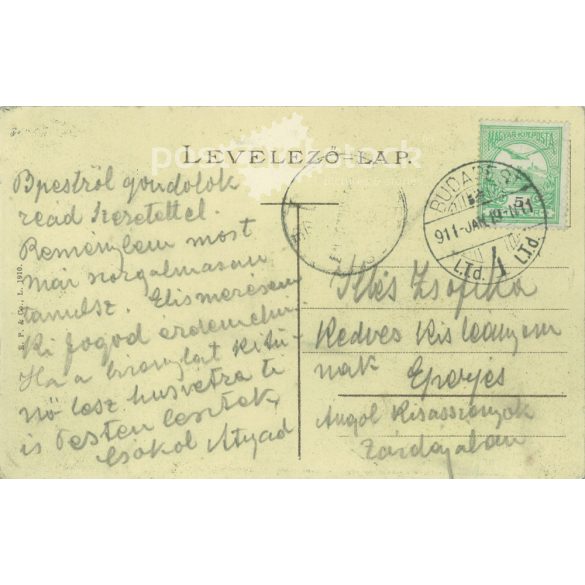 LEVELEZŐ-LAP.
Bpestről gondolok
read Szeretettel.
Reménylem most
már szorgalmasan
tanulsz. Elismerésem
ki fogod érdemelni
Ha a bizonylat kitü-
nő lesz husvetra te
is Pesten lesztek,
Csókol Atyád
E. P. & Co., L. 1910.
MAGYAR KIR. POSTA
5
BUDAPEST
911-JAN.19-N11
Illés Zsófika
Kedves Kis leányom
nak Eperjes
Angol Kisasszonyok
Zárdájában